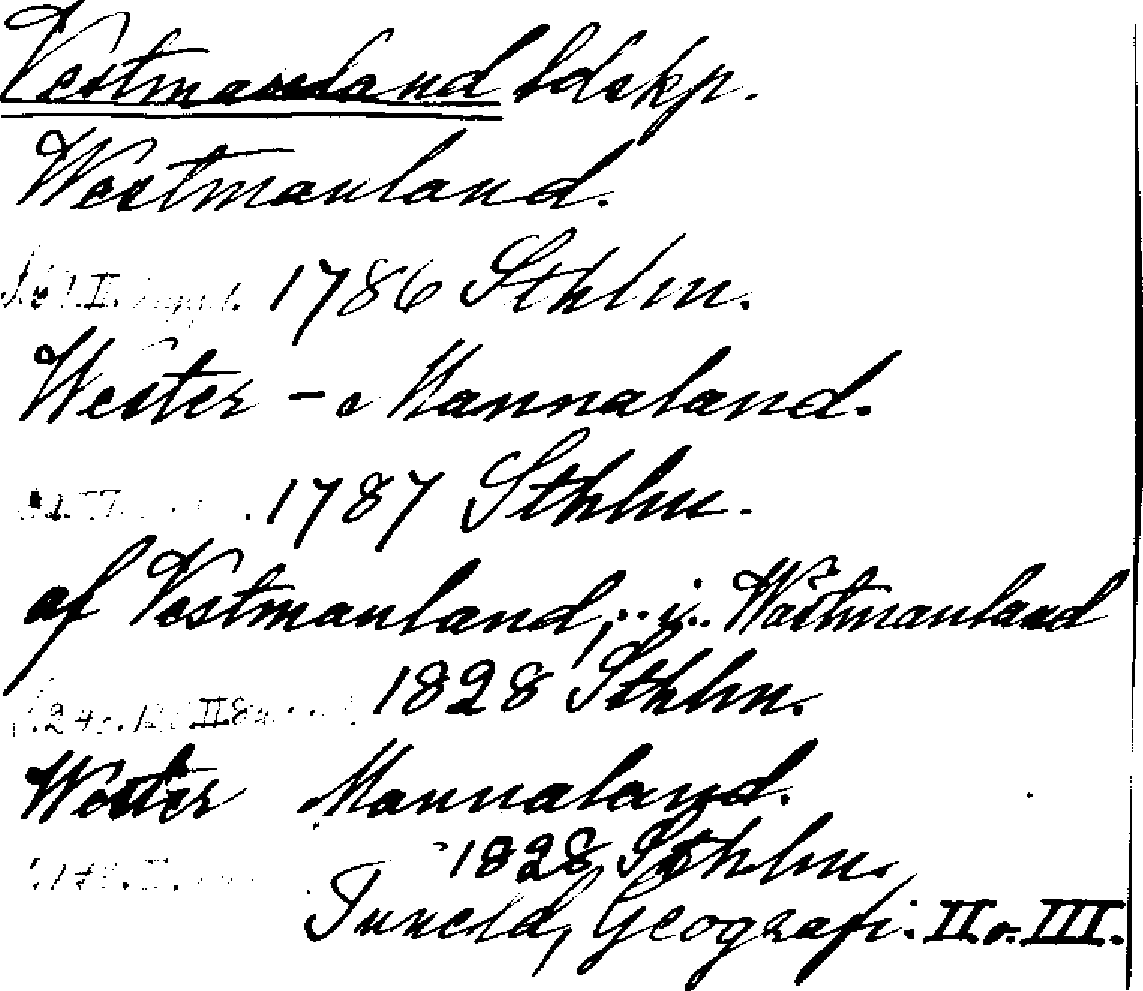 Vestmanland ldskp.
Westmanland.
1786 Sthlm.
Wester - Mannaland.
1787 Sthlm.
af Vestmanland, .. i .. Wästmanland
1828 Sthlm.
Wester Mannaland.
1828 Sthlm.
Tuneld, Geografi. II o. III.